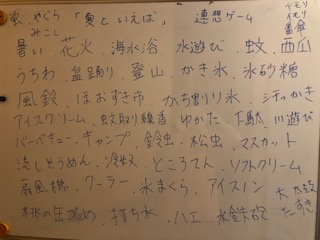 蛍、やぐら「夏といえば」連想ゲーム
みこし
ヤモリ
イモリ
暑い、花火、海水浴、水遊び、蚊、西瓜
うちわ、盆踊り、登山、かき氷、氷砂糖
風鈴、ほおずき市、かち割り氷、汗っかき
アイスクリーム、蚊取り線香、ゆかた、下駄、川遊び
バーベキュー、キャンプ、鈴虫、松虫、マスカット
流しそうめん、冷奴、ところてん、ソフトクリーム
扇風機、クーラー、氷まくら、アイスノン
太鼓
たすき
桃の缶づめ、打ち水、ハエ、水鉄砲